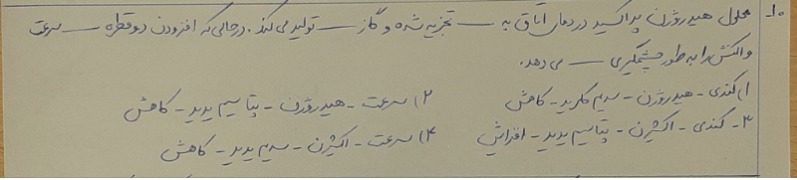 ۱۰- محلول هیدروژن پراکسید در دمای اتاق به ـــ تجزیه شده و گاز ـــ تولید می کند. در حالی که افزودن دو قطره ـــ سرعت
واکنش را به طور چشمگیری ـــ می دهد.
۱) کندی - هیدروژن - سدیم کلرید - کاهش ۲) سرعت - هیدروژن - پتاسیم یدید - کاهش
۳- کندی - اکسیژن - پتاسیم یدید - افزایش ۴) سرعت - اکسیژن - سدیم یدید - کاهش